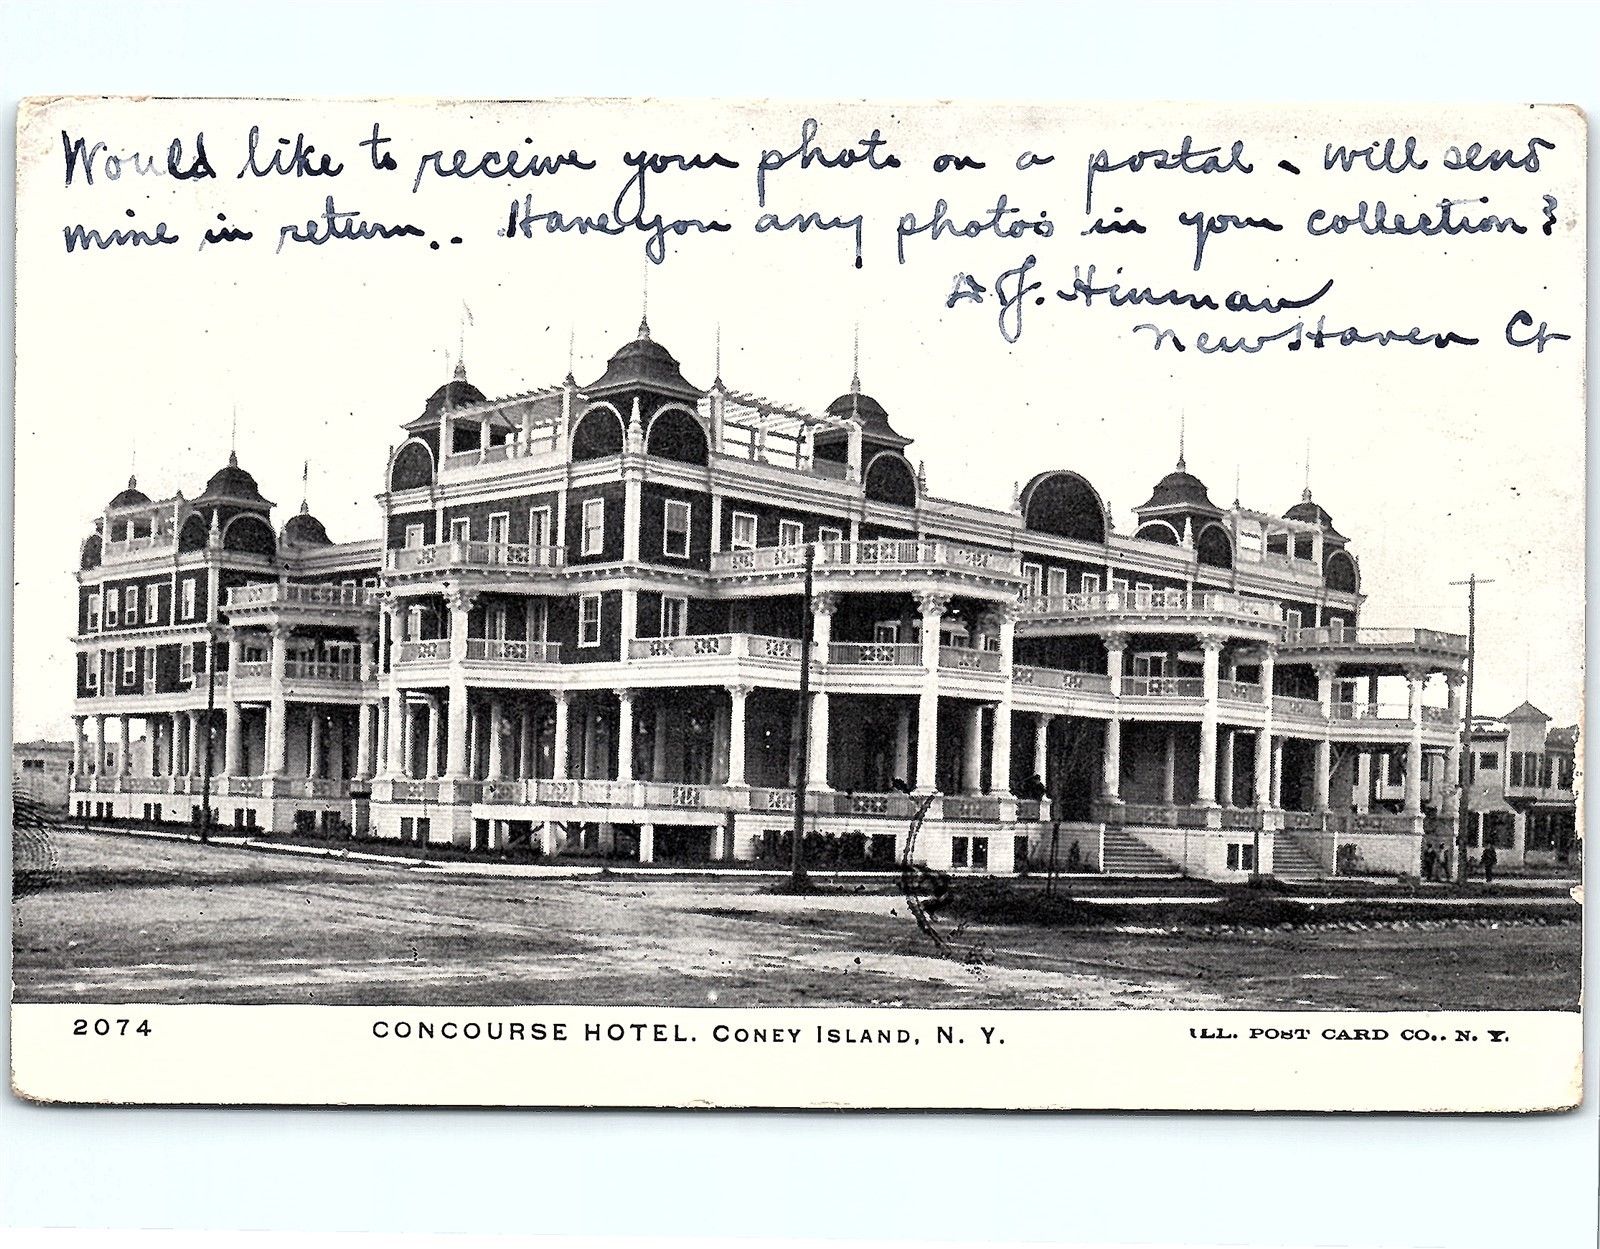 Would like to receive your photo on a postal - will send
mine in return.. Have you any photos in your collection?
J. Hinman
New Haven Ct
2074 CONCOURSE HOTEL. CONEY ISLAND, N. Y. ILL. POST CARD CO.. N. Y.